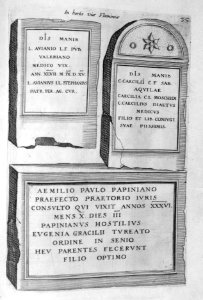 In hortis Viae Flaminiae
DIS MANIB
L. AVIANIO L. F. PVB
VALERIANO
MEDICO VIX
ANN XXVII M IX D XV
L. AVIANVS LL STEPHANVS
PATR. FER AG. CVR.
DIS MANIB
AQVILAE
FILIO ET LIB. CONIVGI
SVAE PIISSIMIS
AEMILIO PAVLO PAPINIANO
PRAEFECTO PRAETORIO IVRIS
CONSVLTO QVI VIXIT ANNOS XXXVI
MENS X DIES III
PAPINIANVS HOSTILIVS
EVGENIA GRACILIS TVREATO
ORDINE IN SENIO
HEV PARENTES FECERVNT
FILIO OPTIMO